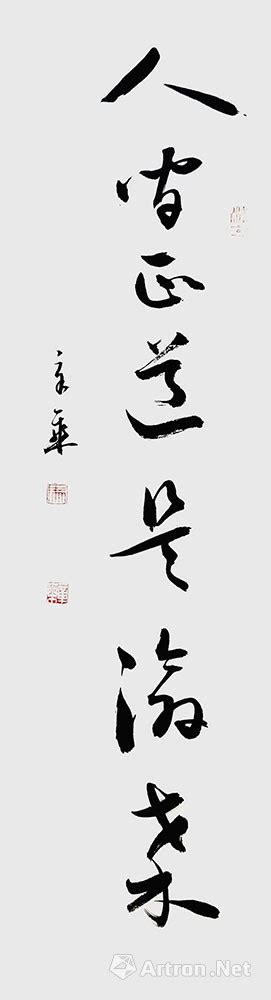 人間正道是滄桑
Artron.Net